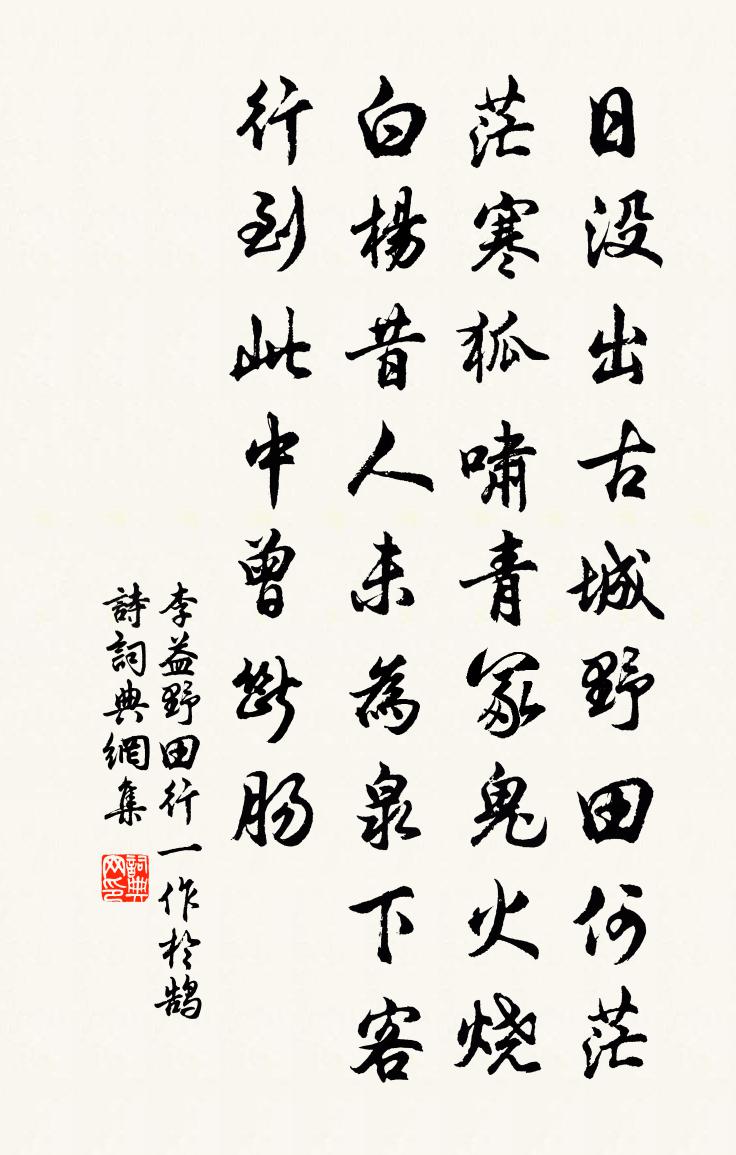 日没出古城野田何茫
茫寒狐啸青冢鬼火烧
白楊昔人未為泉下客
行到此中曾斷肠
李益野田行一作於鹄
詩詞典網集
詞典
网印